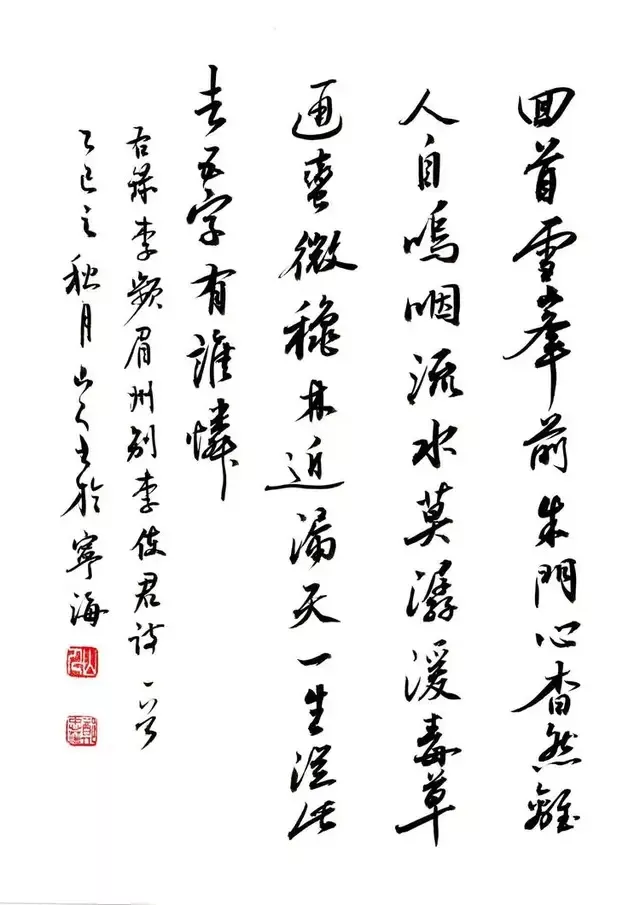 回首雪峯前朱門心杳然離
人自嗚咽流水莫潺湲毒草
通蠻微穐林近漏天一生從此
去五字有誰憐
右錄李頻眉州別李使君詩一首
乙巳之秋月山人書於寧海